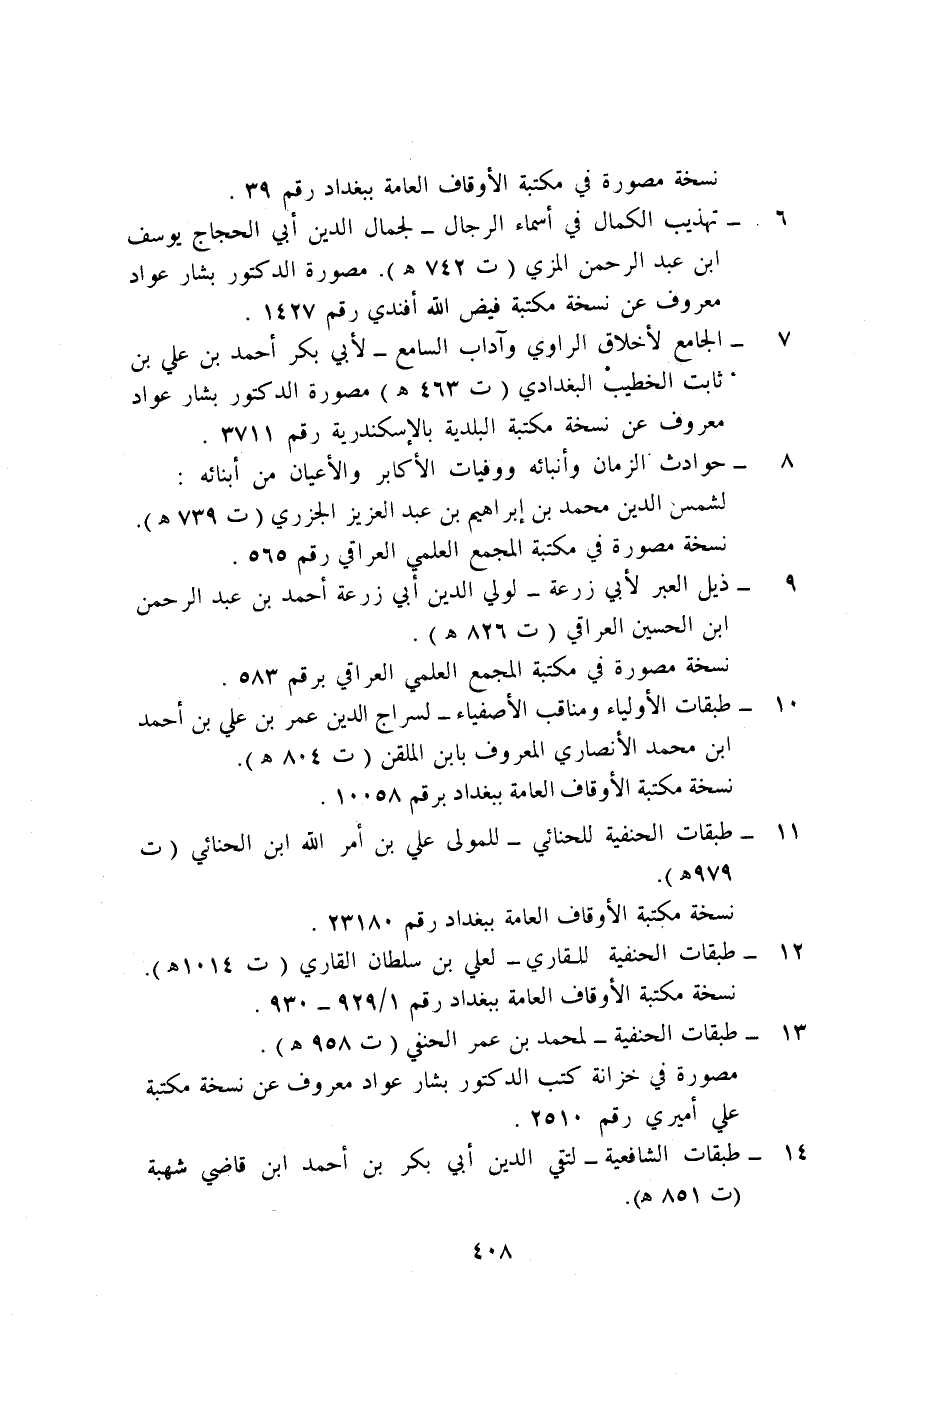 نسخة مصورة في مكتبة الأوقاف العامة ببغداد رقم ٣٩ .
٦ ـ تهذيب الكمال في أسماء الرجال ـ لجمال الدين أبي الحجاج يوسف
ابن عبد الرحمن المزي ( ت ٧٤٢ ه ). مصورة الدكتور بشار عواد
معروف عن نسخة مكتبة فيض الله أفندي رقم ١٤٢٧ .
٧ ـ الجامع لأخلاق الراوي وآداب السامع ـ لأبي بكر أحمد بن علي بن
ثابت الخطيب البغدادي ( ت ٤٦٣ ه ) مصورة الدكتور بشار عواد
معروف عن نسخة مكتبة البلدية بالإسكندرية رقم ٣٧١١ .
٨ ـ حوادث الزمان وأنبائه ووفيات الأكابر والأعيان من أبنائه :
لشمس الدين محمد بن إبراهيم بن عبد العزيز الجزري ( ت ٧٣٩ ه ).
نسخة مصورة في مكتبة المجمع العلمي العراقي رقم ٥٦٥ .
٩ ـ ذيل العبر لأبي زرعة ـ لولي الدين أبي زرعة أحمد بن عبد الرحمن
ابن الحسين العراقي ( ت ٨٢٦ ه ) .
نسخة مصورة في مكتبة المجمع العلمي العراقي برقم ٥٨٣ .
١٠ ـ طبقات الأولياء ومناقب الأصفياء ـ لسراج الدين عمر بن علي بن أحمد
ابن محمد الأنصاري المعروف بابن الملقن ( ت ٨٠٤ ه ).
نسخة مكتبة الأوقاف العامة ببغداد برقم ١٠٠٥٨ .
١١ ـ طبقات الحنفية للحنائي ـ للمولى علي بن أمر الله ابن الحنائي ( ت
٩٧٩ه ).
نسخة مكتبة الأوقاف العامة ببغداد رقم ٢٣١٨٠ .
١٢ ـ طبقات الحنفية للقاري ـ لعلي بن سلطان القاري ( ت ١٠١٤ه ).
نسخة مكتبة الأوقاف العامة ببغداد رقم ٩٢٩/١ ـ ٩٣٠ .
١٣ ـ طبقات الحنفية ـ لمحمد بن عمر الحنفي ( ت ٩٥٨ ه ) .
مصورة في خزانة كتب الدكتور بشار عواد معروف عن نسخة مكتبة
علي أميري رقم ٢٥١٠ .
١٤ ـ طبقات الشافعية ـ لتقي الدين أبي بكر بن أحمد ابن قاضي شهبة
(ت ٨٥١ ه).
٤٠٨